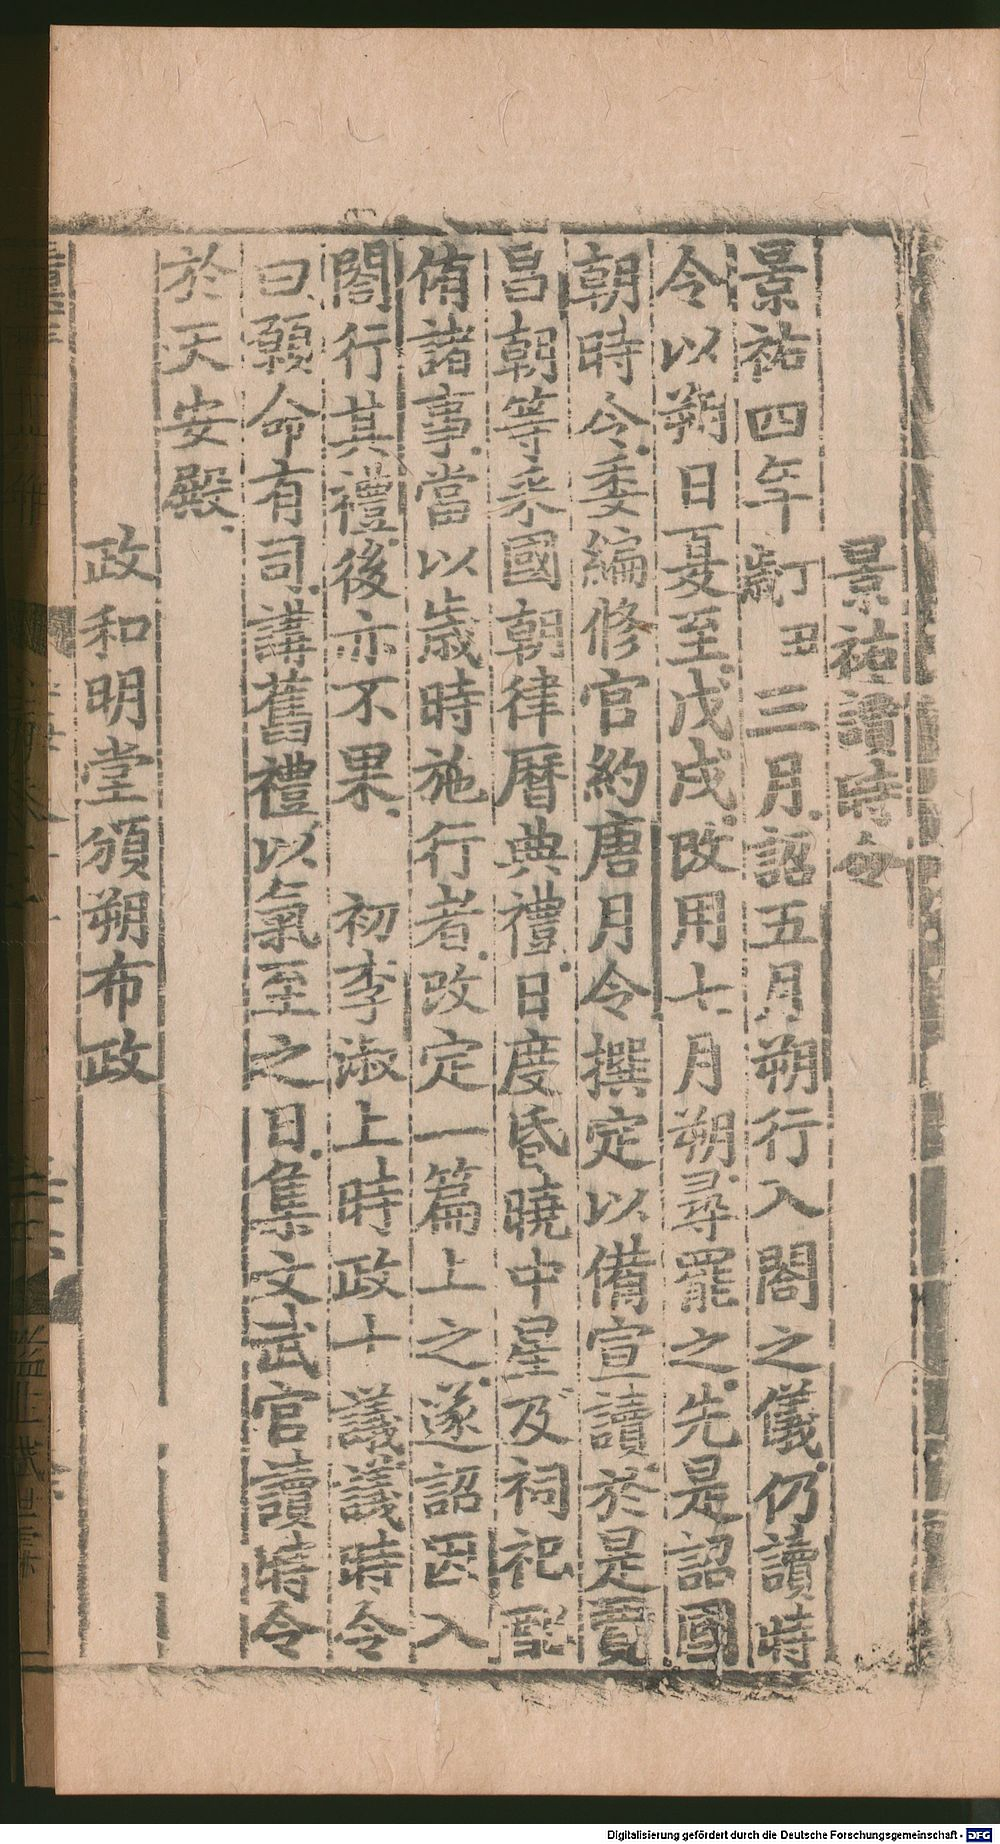 景祐讀時令
景祐四年歲丁丑三月詔五月朔行入閤之儀仍讀時
令以朔日夏至戊戌改用七月朔尋罷之先是詔國
朝時令委編修官約唐月令撰定以備宣讀於是賈
昌朝等采國朝律曆典禮日度昏曉中星及祠祀配
侑諸事當以歲時施行者改定一篇上之遂詔因入
閤行其禮後亦不果 初李淑上時政十議議時令
曰願命有司講舊禮以氣至之日集文武官讀時令
於天安殿
政和明堂頒朔布政
Digitalisierung gefördert durch die Deutsche Forschungsgemeinschaft - DFG